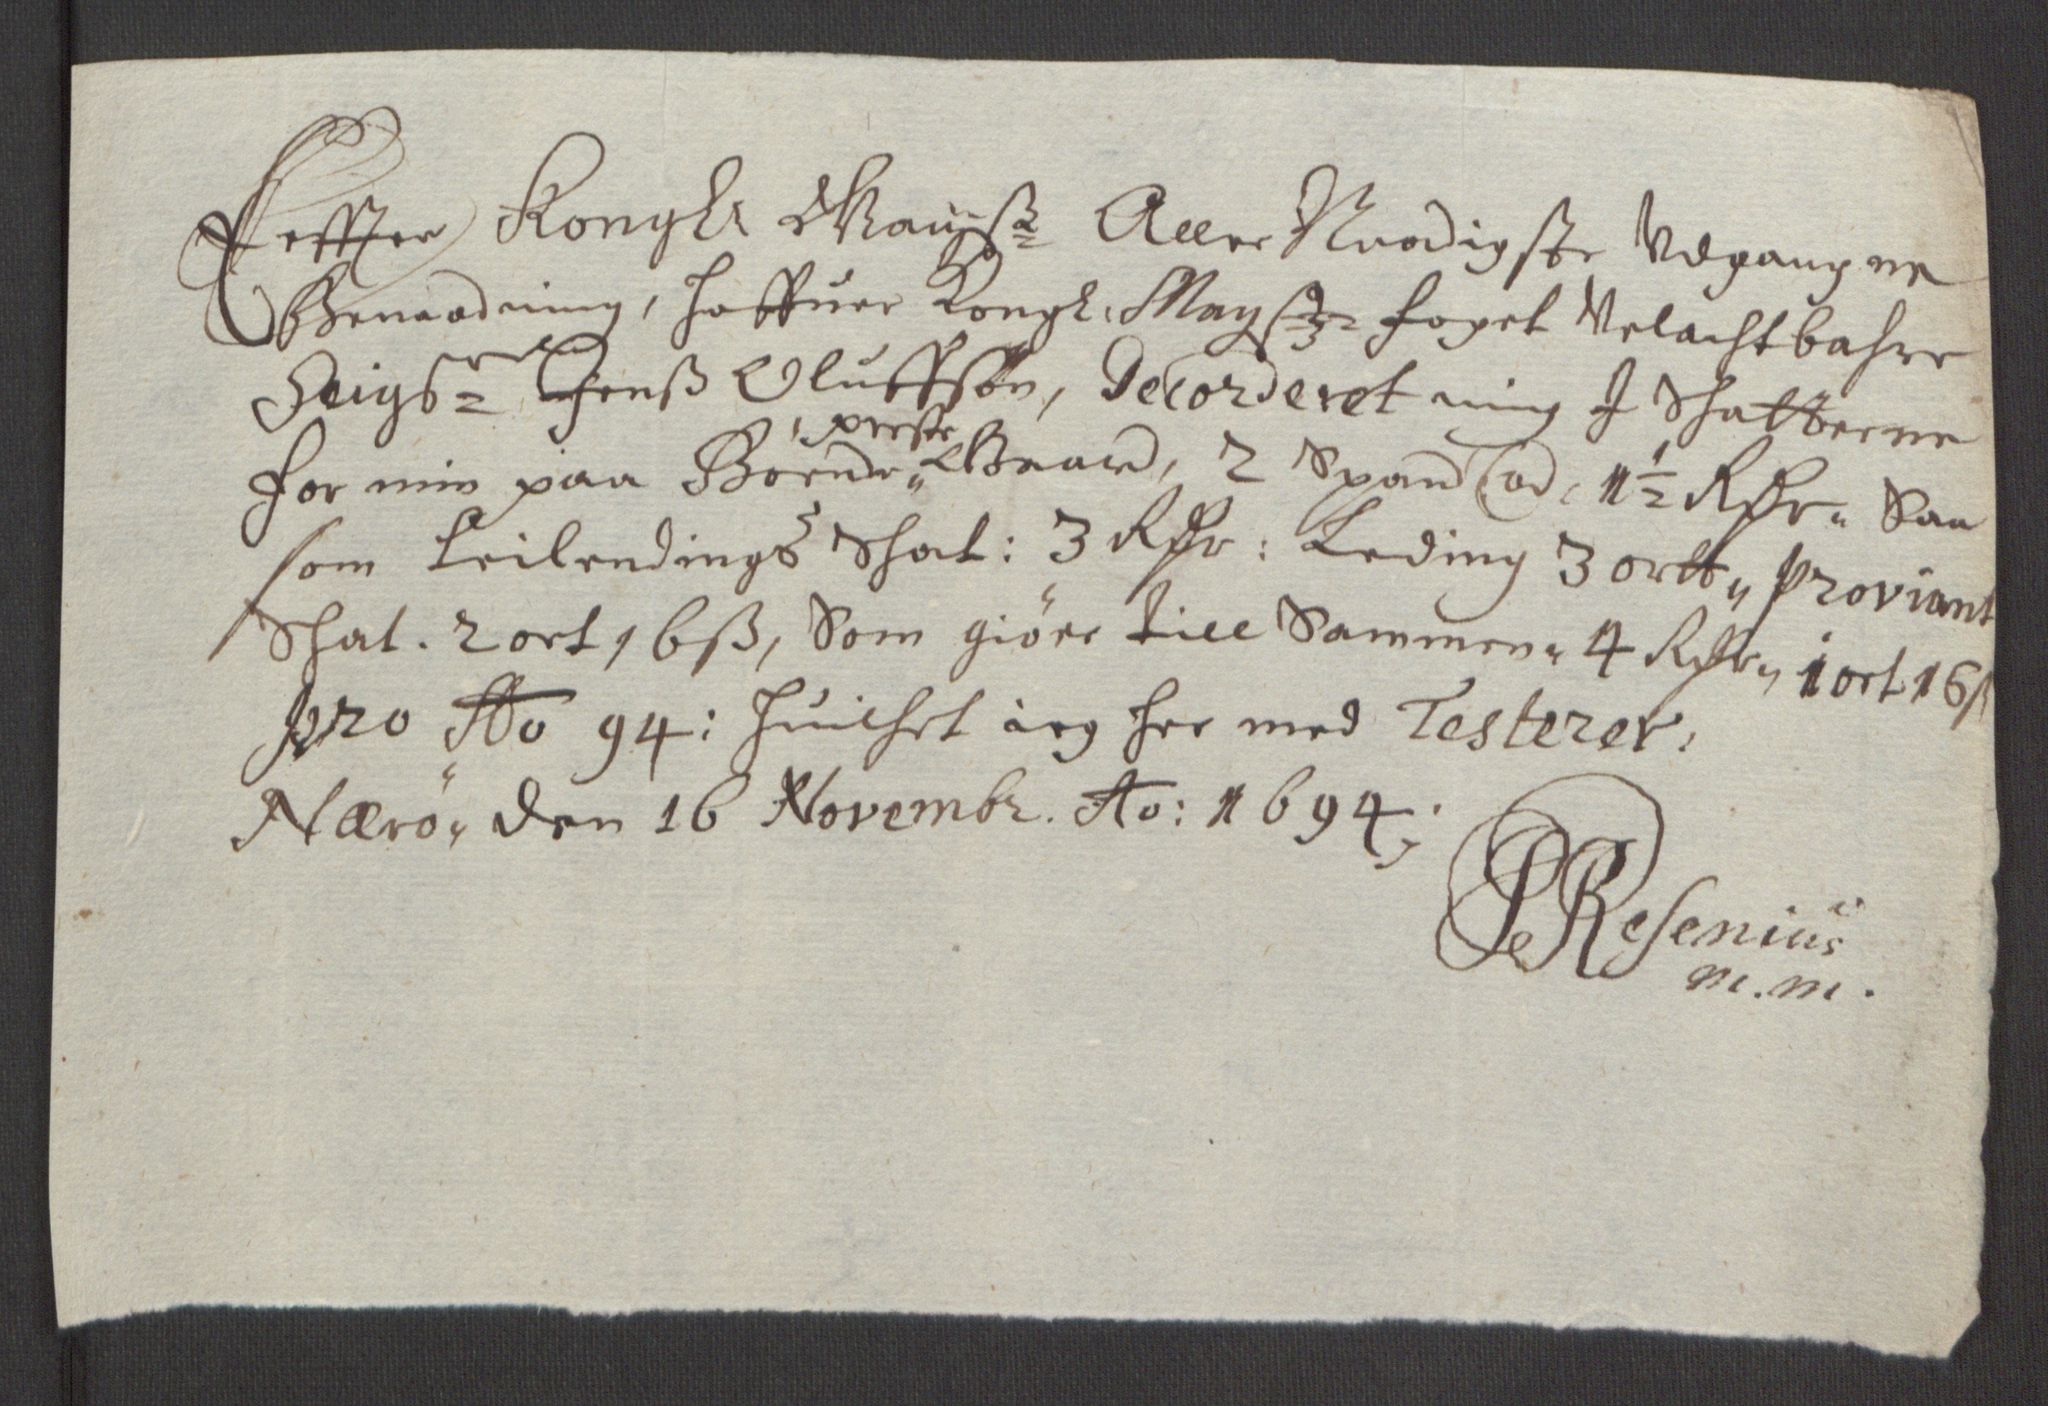 Effter Kongl: Mayßz Aller Naadigste Udgangne
Benaadning, haffuer Kongl. Mayßz foget Velachtbahre
Seigr Jenß Oluffsøn, Decorderet mig J Skatterne
for min paa Boende preste Gaard, 2 Spand 1½ Rdr Saa
som Leilendings Skat: 3 Rdr: Leding 3 ortt, Proviant
Skat. 2 ort 16ß, Som giöre till Sammen 4 Rdr, 1 ort 16ß
pro Ao 94: huilket ieg her med Testerer,
Nærö, den 16 Novembr. Ao: 1694;
Resenius
m.m.